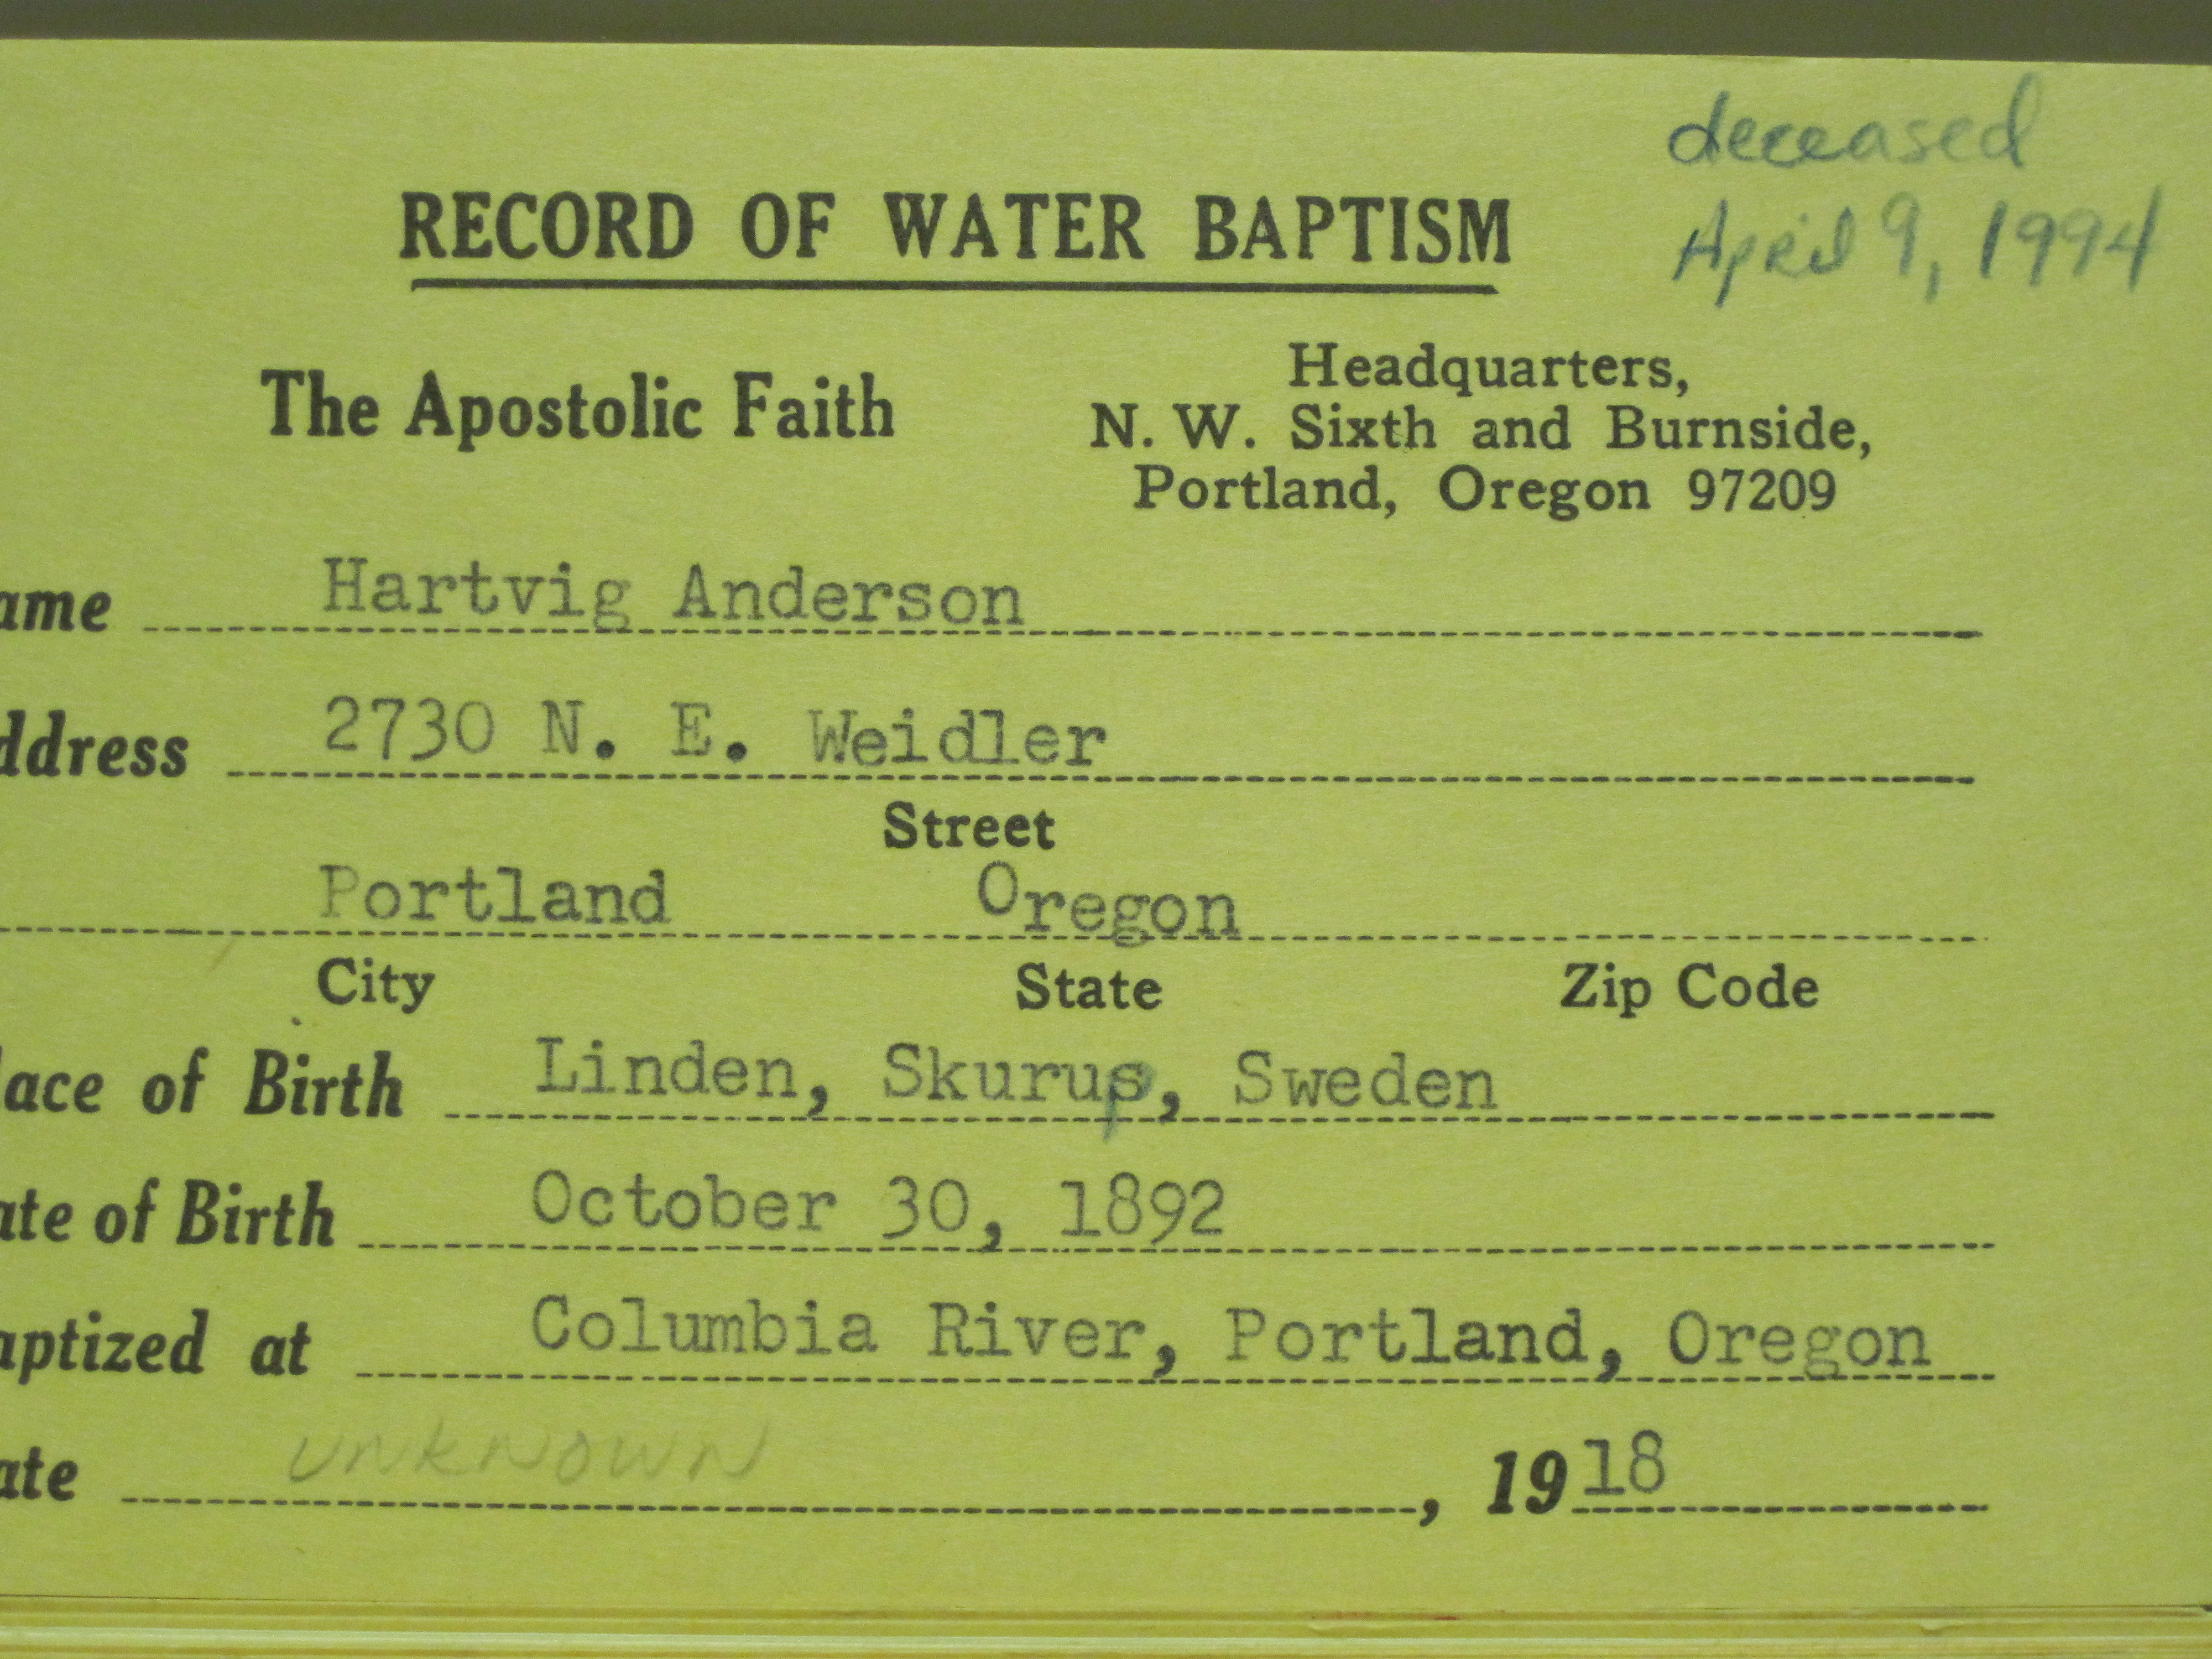 deceased
April 9, 1994
RECORD OF WATER BAPTISM
The Apostolic Faith
Headquarters,
N. W. Sixth and Burnside,
Portland, Oregon 97209
ame Hartvig Anderson
ddress 2730 N. E. Weidler
Street
Portland Oregon
City State Zip Code
lace of Birth Linden, Skurup, Sweden
ate of Birth October 30, 1892
aptized at Columbia River, Portland, Oregon
ate unknown, 1918